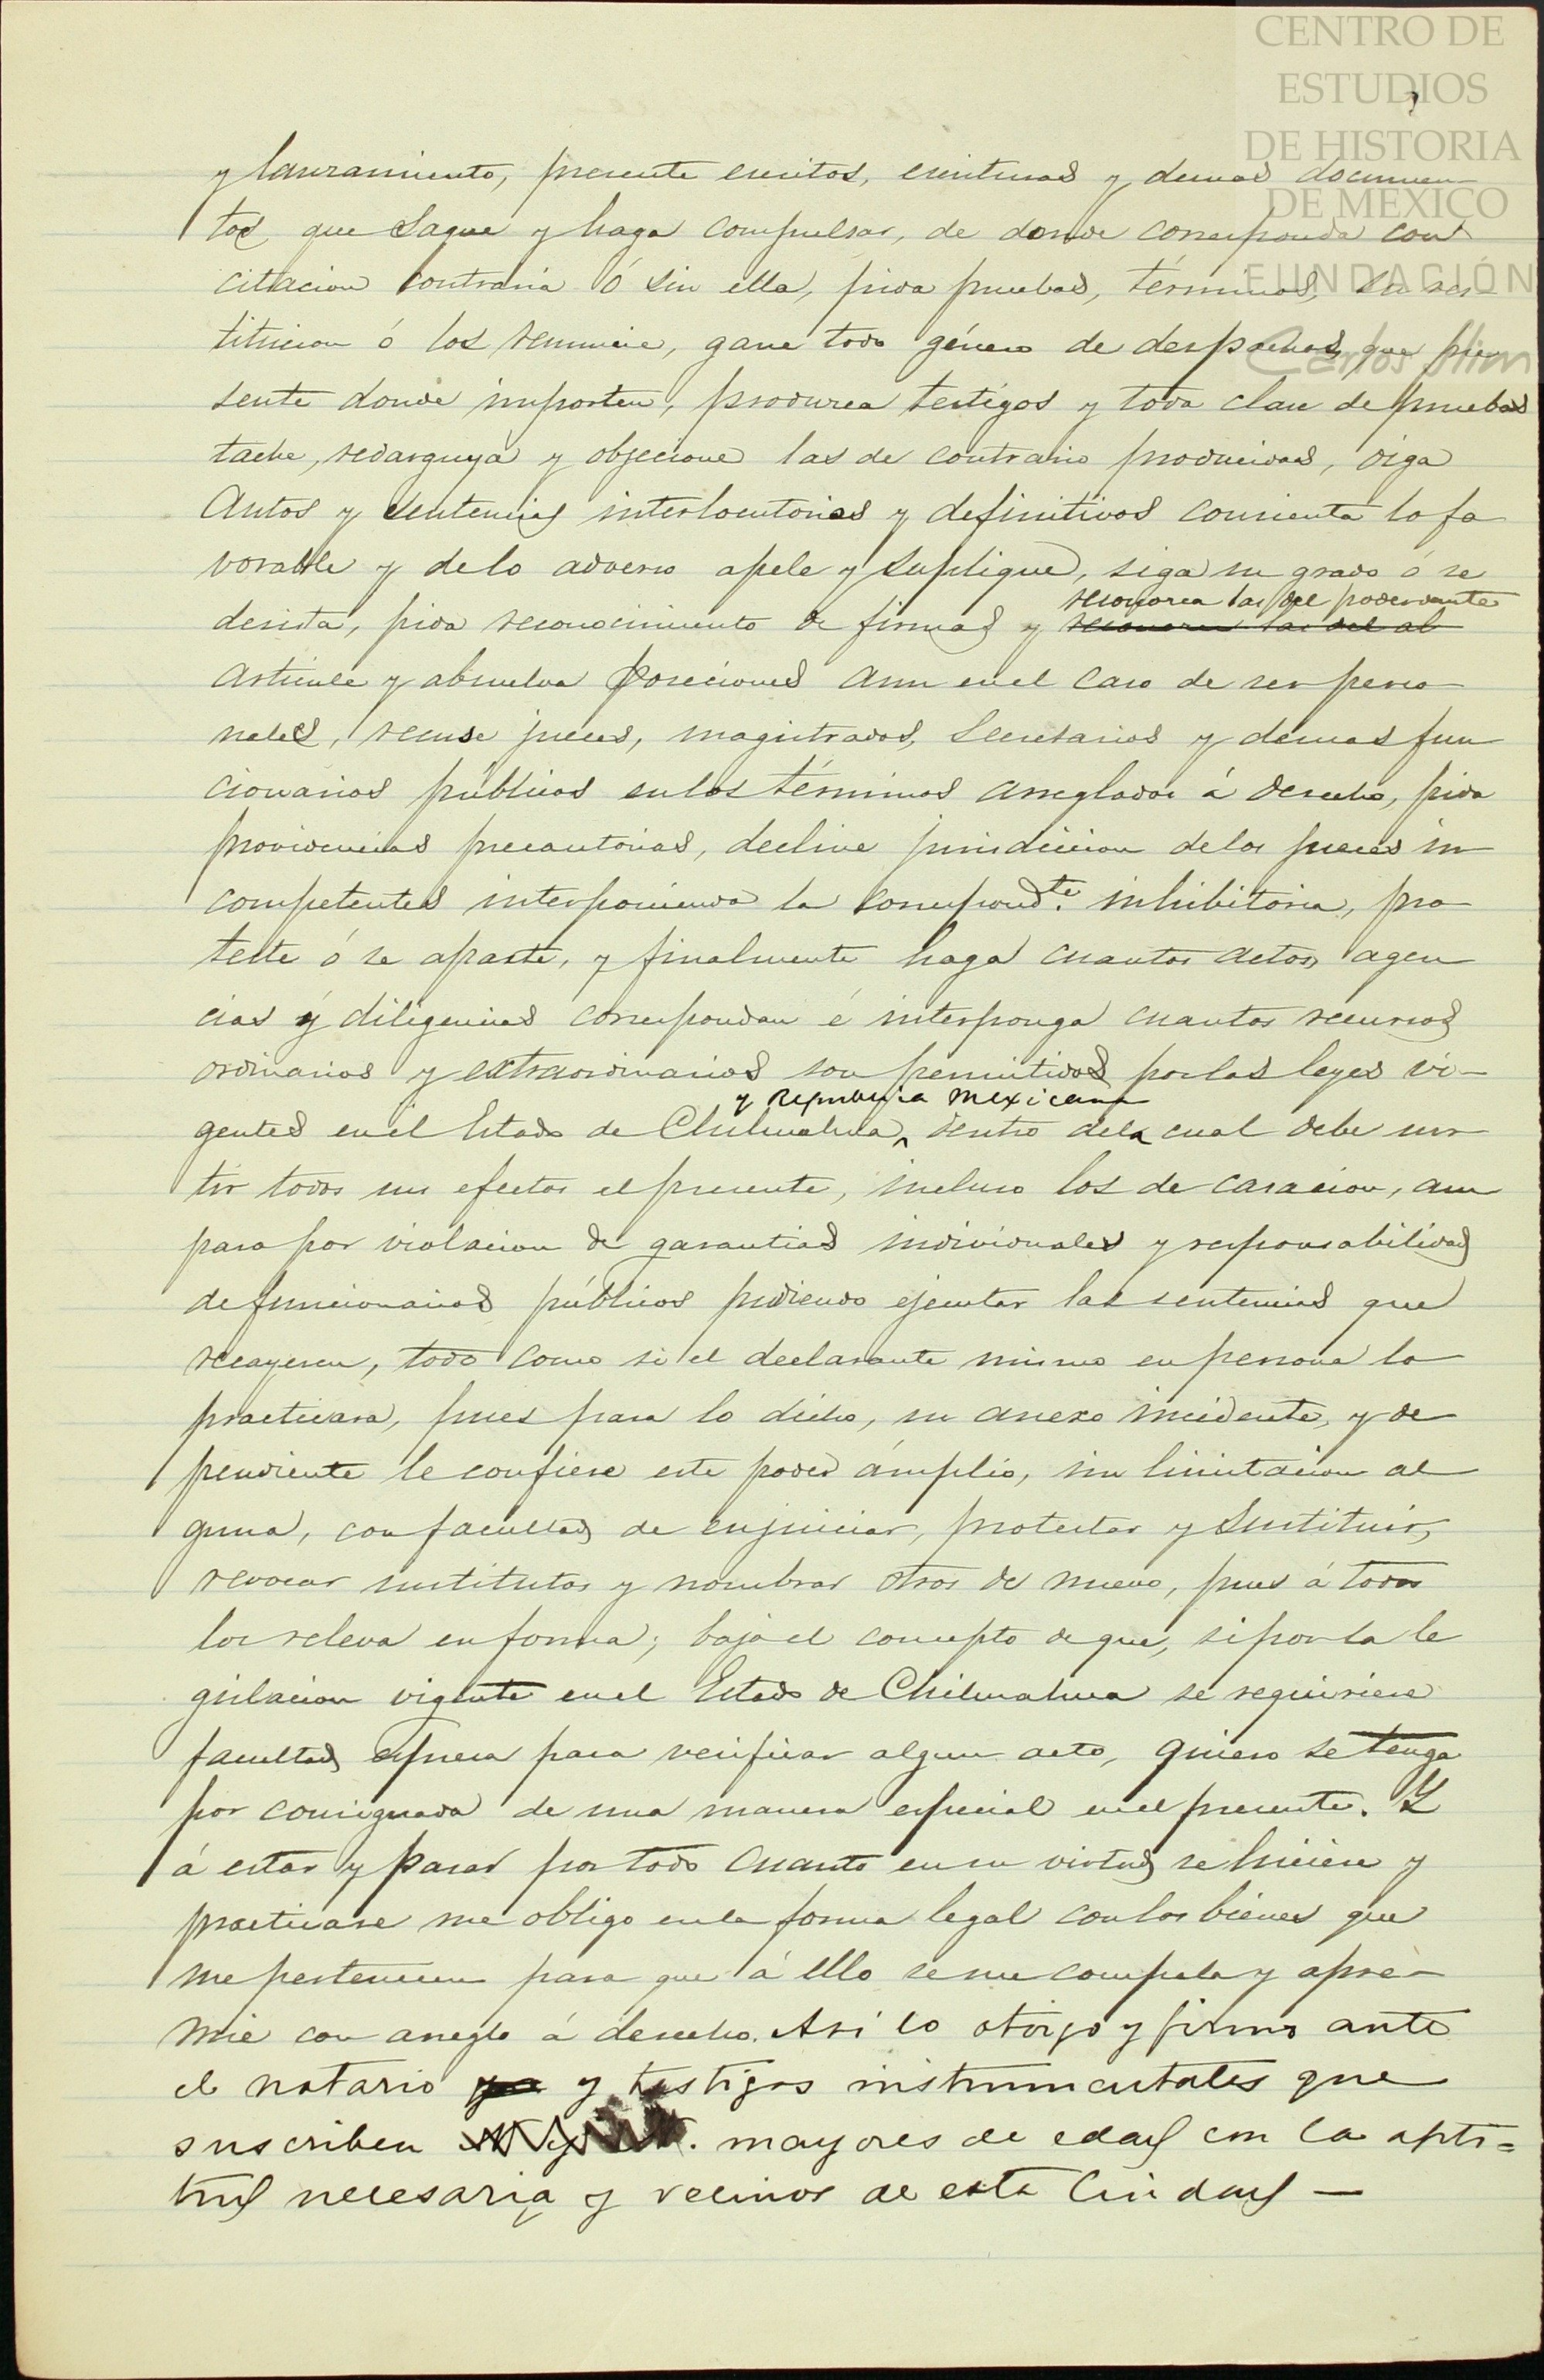 CENTRO DE
ESTUDIOS
DE HISTORIA
DE MEXICO
FUNDACIÓN
Carlos Slim
y lanzamiento, presente escritos, escrituras y demas documen
tos que saque y haga compulsar, de donde corresponda con
citacion contraria ó sin ella, pida pruebas, términos, su res-
titucion ó los renuncie, gane todo género de despachos, que pre
sente donde importen, produzca testigos y toda clase de pruebas
tache, redarguya y objecione las de contrario producidas, oiga
Autos y sentencias interlocutorias y definitivos consienta lo fa
vorable y de lo adverso apele y suplique, siga su grado ó se
reconozca las del poderdante
desista, pida reconocimiento de firmas y reconozca las del al
articule y absuelva posiciones aun en el caso de ser perso
nales, recuse jueces, magistrados, Secretarios y demas fun
cionarios públicos en los términos arreglados á derecho, pida
providencias precautorias, decline jurisdiccion de los jueces in
competentes interponiendo la correspond.te inhibitoria, pro
teste ó se aparte, y finalmente haga cuantos actos, agen
cias y diligencias correspondan é interponga cuantos recursos
ordinarios y extraordinarios son permitidos por las leyes vi-
y Republica Mexicana
gentes en el Estado de Chihuahua, dentro de la cual debe sur
tir todos sus efectos el presente, incluso los de casacion, am
paro por violacion de garantias individuales y responsabilidad
de funcionarios públicos pudiendo ejecutar las sentencias que
recayeren, todo como si el declarante mismo en persona lo
practicara, pues para lo dicho, su anexo incidente, y de
pendiente le confiere este poder ámplio, sin limitacion al
guna, con facultad de enjuiciar, protestar y Sustituir,
revocar sustitutos y nombrar otros de nuevo, pues á todos
los releva en forma; bajo el concepto de que, si por la le
gislacion vigente en el Estado de Chihuahua se requiriere
facultad espresa para verificar algun acto, quiero se tenga
por consignada de una manera especial en el presente. Y
á estar y pasar por todo cuanto en su virtud se hiciere y
practicare me obligo en la forma legal con los bienes que
me pertenecen para que á ello se me compela y apre-
mie con areglo á derecho. Asi lo otorgo y firmo ante
el notario y testigos instrumentales que
suscriben mayores de edad con la apti=
tud necesaria y vecinos de esta Ciudad —